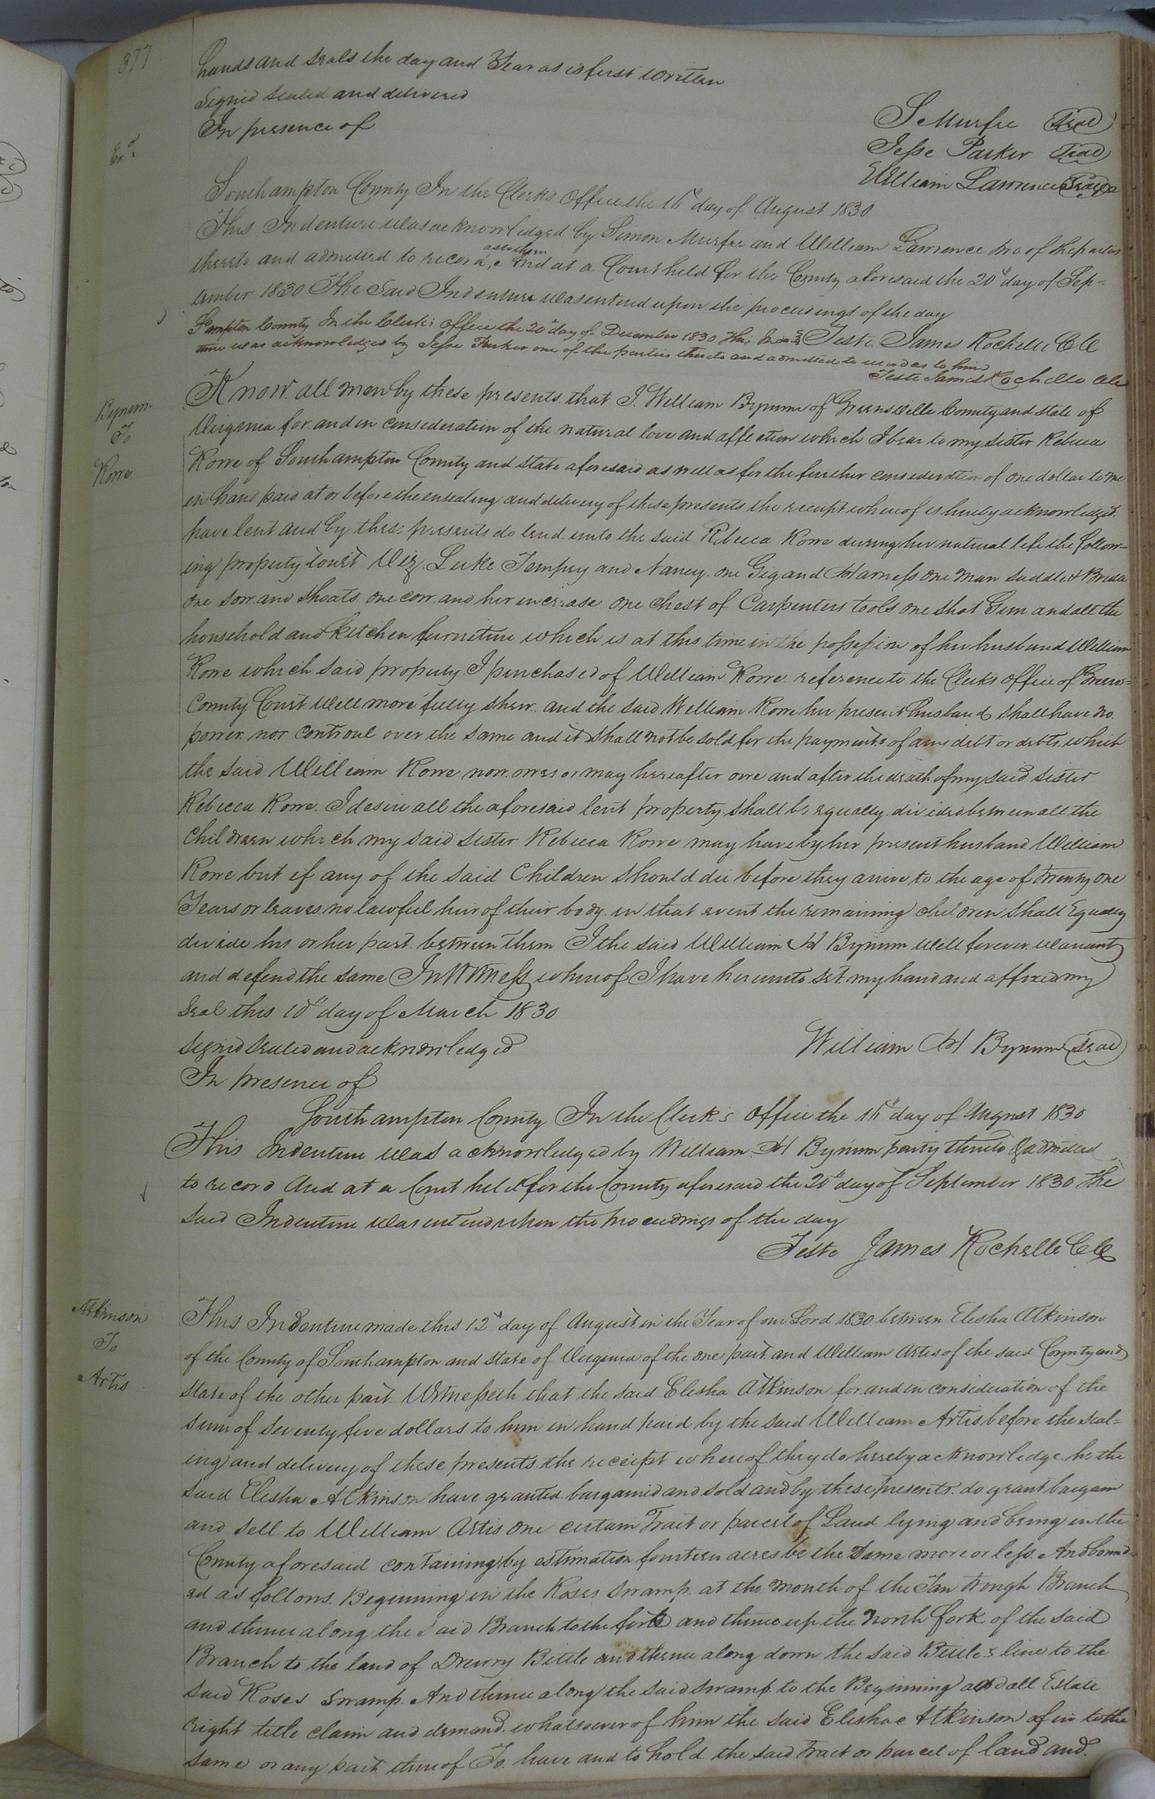 377
hands and seals the day and Year as is first written
Signed sealed and delivered
In presence of
S Murfee Seal
Jesse Parker Seal
William Lawrence Seal
Exd
Southampton County In the Clerks Office the 16th day of August 1830
This Indenture was acknowledged by Simon Murfee and William Lawrence two of the parties
thereto and admitted to record as to them And at a Court held for the County aforesaid the 20th day of Sep-
tember 1830 The Said Indenture was entered upon the proceedings of the day
Teste James Rochelle CC
Hampton County In the Clerks Office the 20th day of December 1830 This Inden
ture was acknowledged by Jesse Parker one of the parties thereto and admitted to record as to him
Teste James Rochelle Clk
Bynum
To
Rowe
Know all men by these presents that I William Bynum of Greensville County and State of
Virginia for and in consideration of the natural love and affection which I bear to my sister Rebecca
Rowe of Southampton County and State aforesaid as well as for the further consideration of one dollar to me
in hand paid at or before the ensealing and delivery of these presents the receipt whereof is hereby acknowledged
have lent and by these presents do lend unto the said Rebecca Rowe during her natural life the follow-
ing property towit Viz, Luke Tempsy and Nancy one Gig and Harness one man saddle & Bridle
One sow and Shoats one cow and her increase one chest of Carpenters tools one shot Gun and all the
household and kitchen furniture which is at this time in the possession of her husband William
Rowe which said property I purchased of William Rowe reference to the Clerks office of Greens-
County Court will more fully shew and the said William Rowe her present husband shall have no
power nor controul over the same and it shall not be sold for the payments of any debt or debts which
the said William Rowe now owes or may hereafter owe and after the death of my said sister
Rebecca Rowe I desire all the aforesaid lent property shall be Equally divided between all the
Children which my said sister Rebecca Rowe may have by her present husband William
Rowe but if any of the said Children should die before they arrive to the age of twenty one
Years or leaves no lawful heir of their body in that event the remaining children shall Equally
divide his or her part between them I the said William H Bynum will forever warrant
and defend the same In Witness whereof I have hereunto set my hand and affixed my
Seal this 10th day of March 1830
Signed Sealed and acknowledged
William H Bynum Seal
In presence of
Southampton County In the Clerk's Office the 16th day of August 1830
This Indenture was acknowledged by William H Bynum party thereto & admitted
to record And at a Court held for the County aforesaid the 20th day of September 1830 The
said Indenture was entered upon the proceedings of the day
Teste James Rochelle CC
Atkinson
To
Artis
This Indenture made this 12th day of August in the Year of our Lord 1830 between Elisha Atkinson
of the County of Southampton and state of Virginia of the one part and William Artis of the said County and
State of the other part Witnesseth that the said Elisha Atkinson for and in consideration of the
sum of seventy five dollars to him in hand paid by the said William Artis before the seal-
ing and delivery of these presents the receipt whereof they do hereby acknowledge he the
said Elisha Atkinson have granted bargained and sold and by these presents do grant bargain
and sell to William Artis One certain Tract or parcel of Land lying and being in the
County aforesaid containing by estimation fourteen acres be the same more or less And bound
ed as follows Beginning in the Roses Swamp at the mouth of the Tan trough Branch
and thence along the said Branch to the fork and thence up the North fork of the said
Branch to the land of Drewry Bittle and thence along down the said Bittles line to the
said Roses Swamp And thence along the said swamp to the Beginning and all Estate
right title claim and demand whatsoever of him the said Elisha Atkinson of in to the
same or any part thereof To have and to hold the said tract or parcel of land and